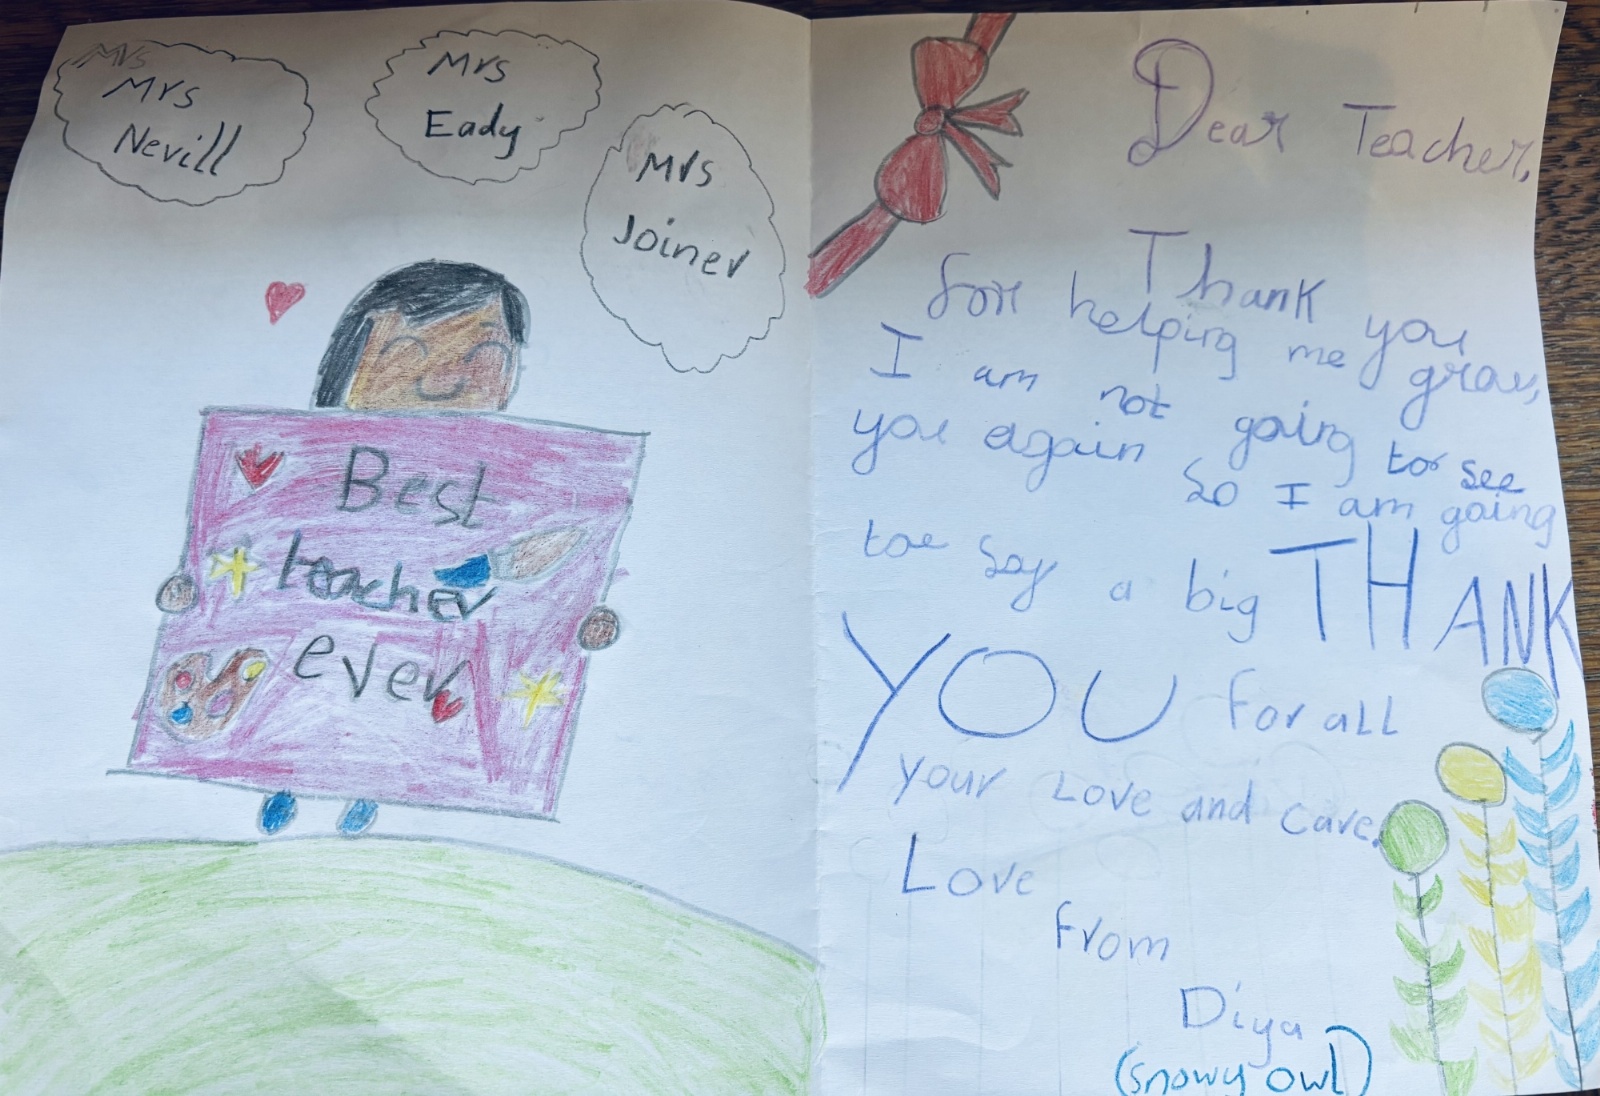 Mrs
Mrs
Nevill
Mrs
Eady
Mrs
Joiner
Best
teacher
ever
Dear Teacher,
Thank you
for helping me grow,
I am not going to see
you again so I am going
toe say a big THANK
YOU for all
your Love and care.
Love
from
Diya
(snowy owl)